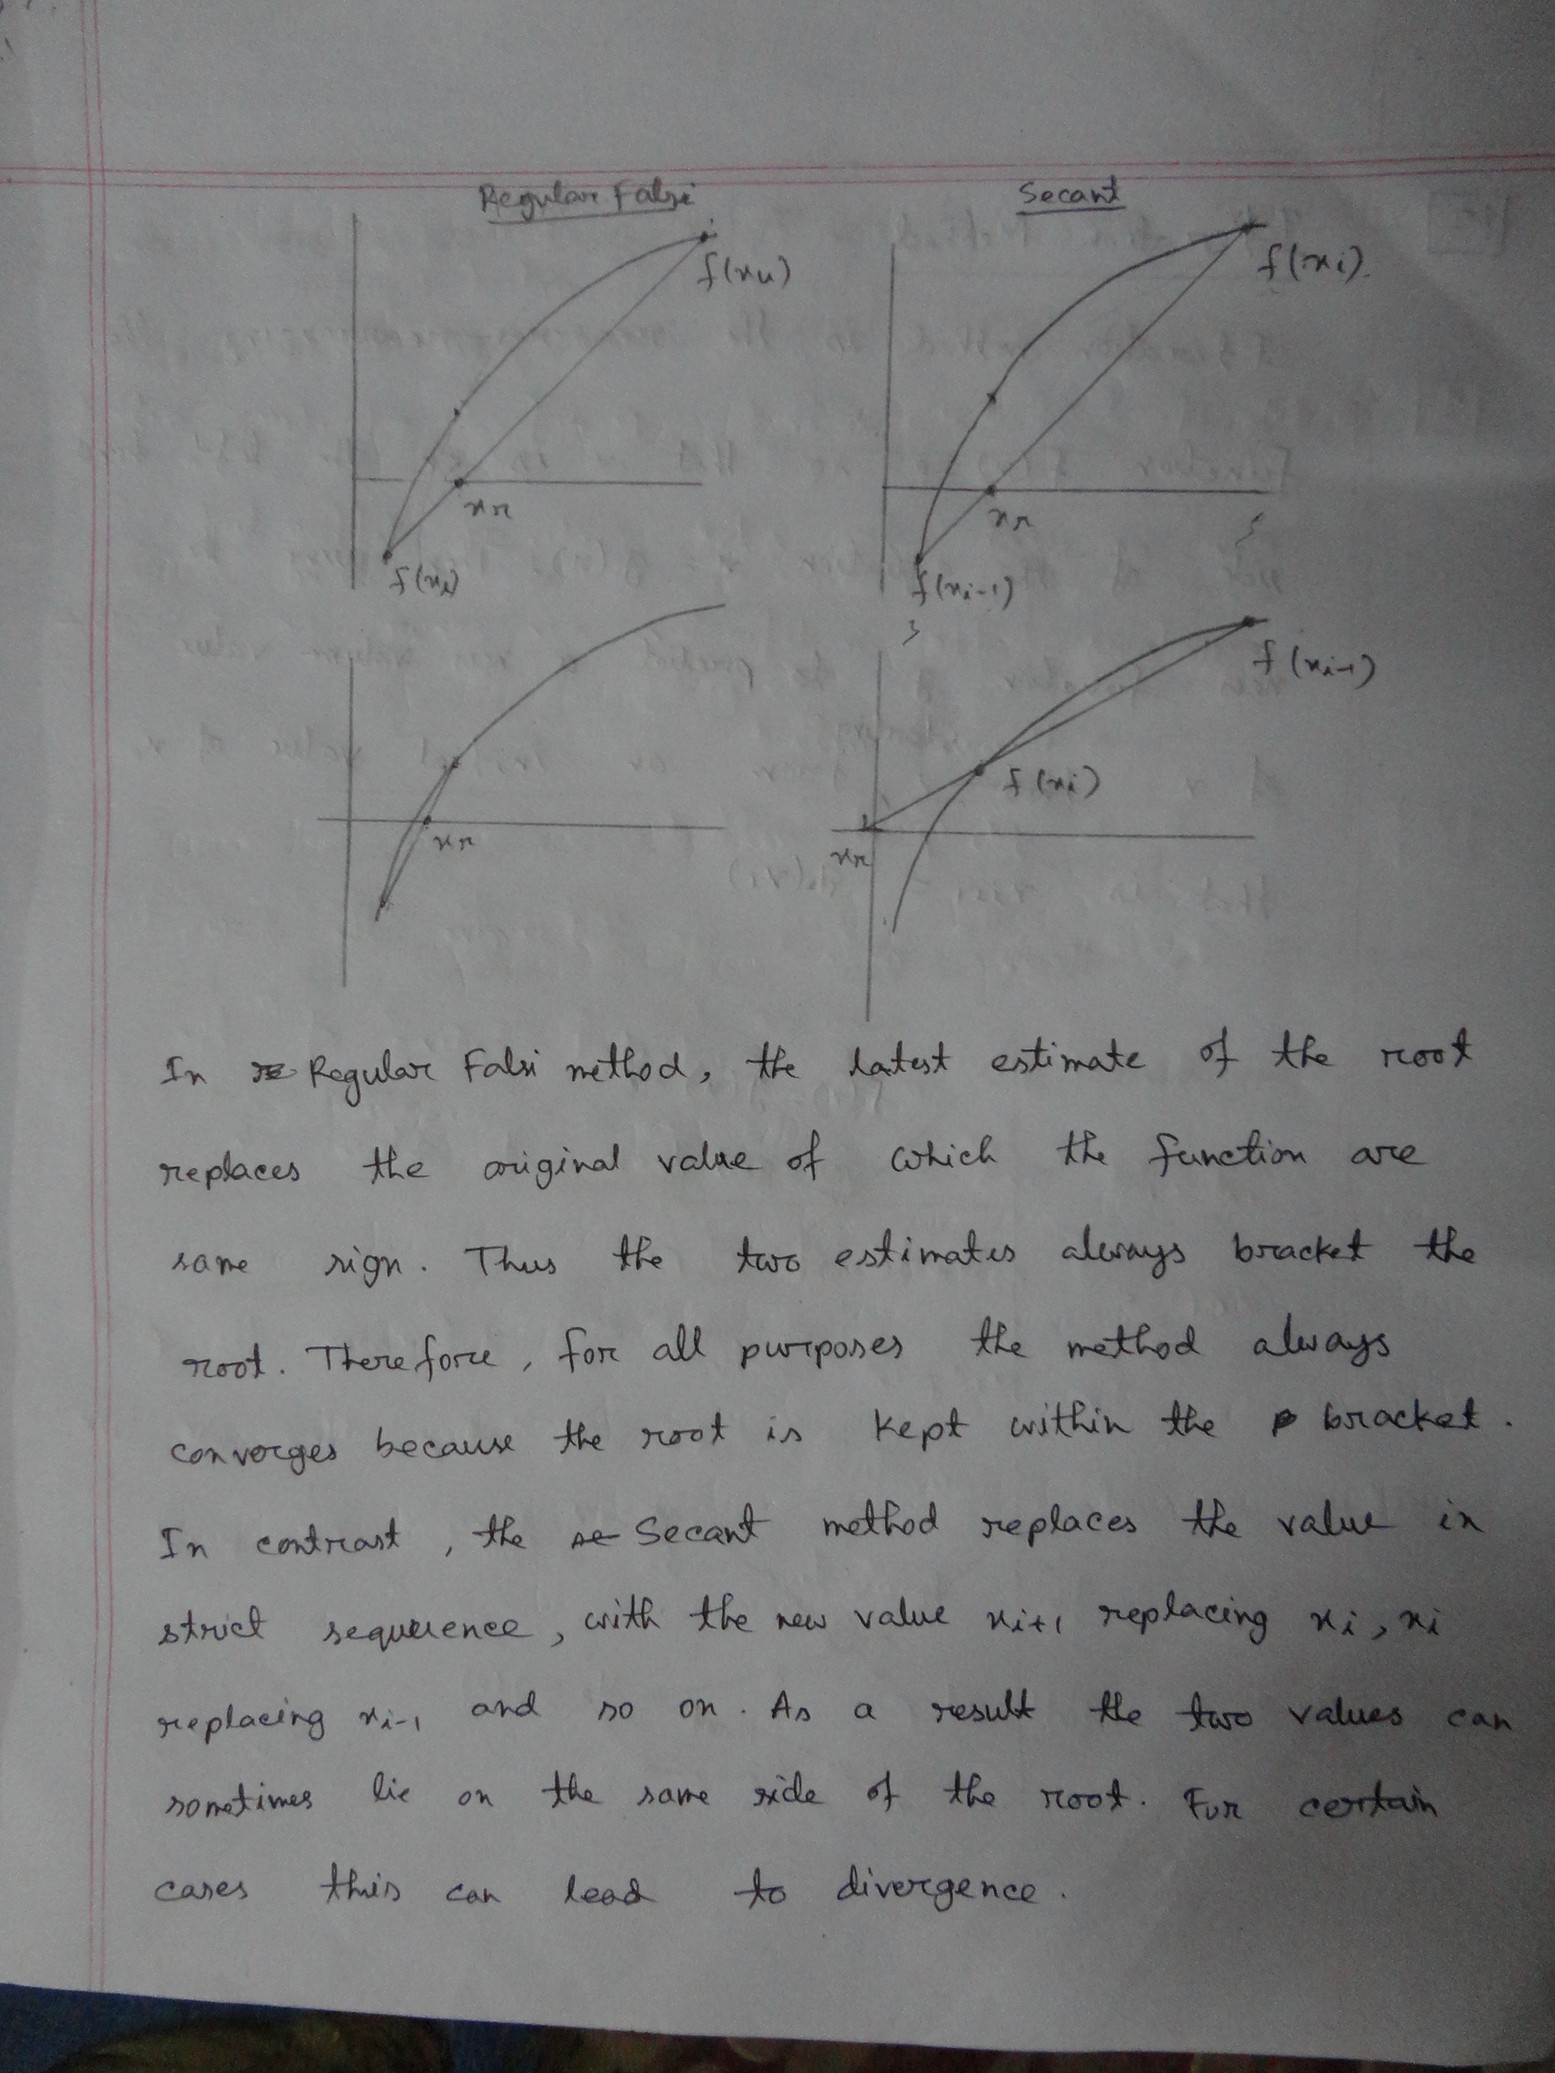 Regular Falsi
Secant
f(xu)
f(xi).
xr
xr
f(xi)
f(xi-1)
f(xi-1)
f(xi)
xr
xr
In Regular Falsi method, the latest estimate of the root
replaces the original value of which the function are
same sign. Thus the two estimates always bracket the
root. Therefore, for all purposes the method always
converges because the root is kept within the bracket.
In contrast, the Secant method replaces the value in
strict sequence, with the new value xi+1 replacing xi, xi
replacing xi-1 and so on. As a result the two values can
sometimes lie on the same side of the root. For certain
cases this can lead to divergence.